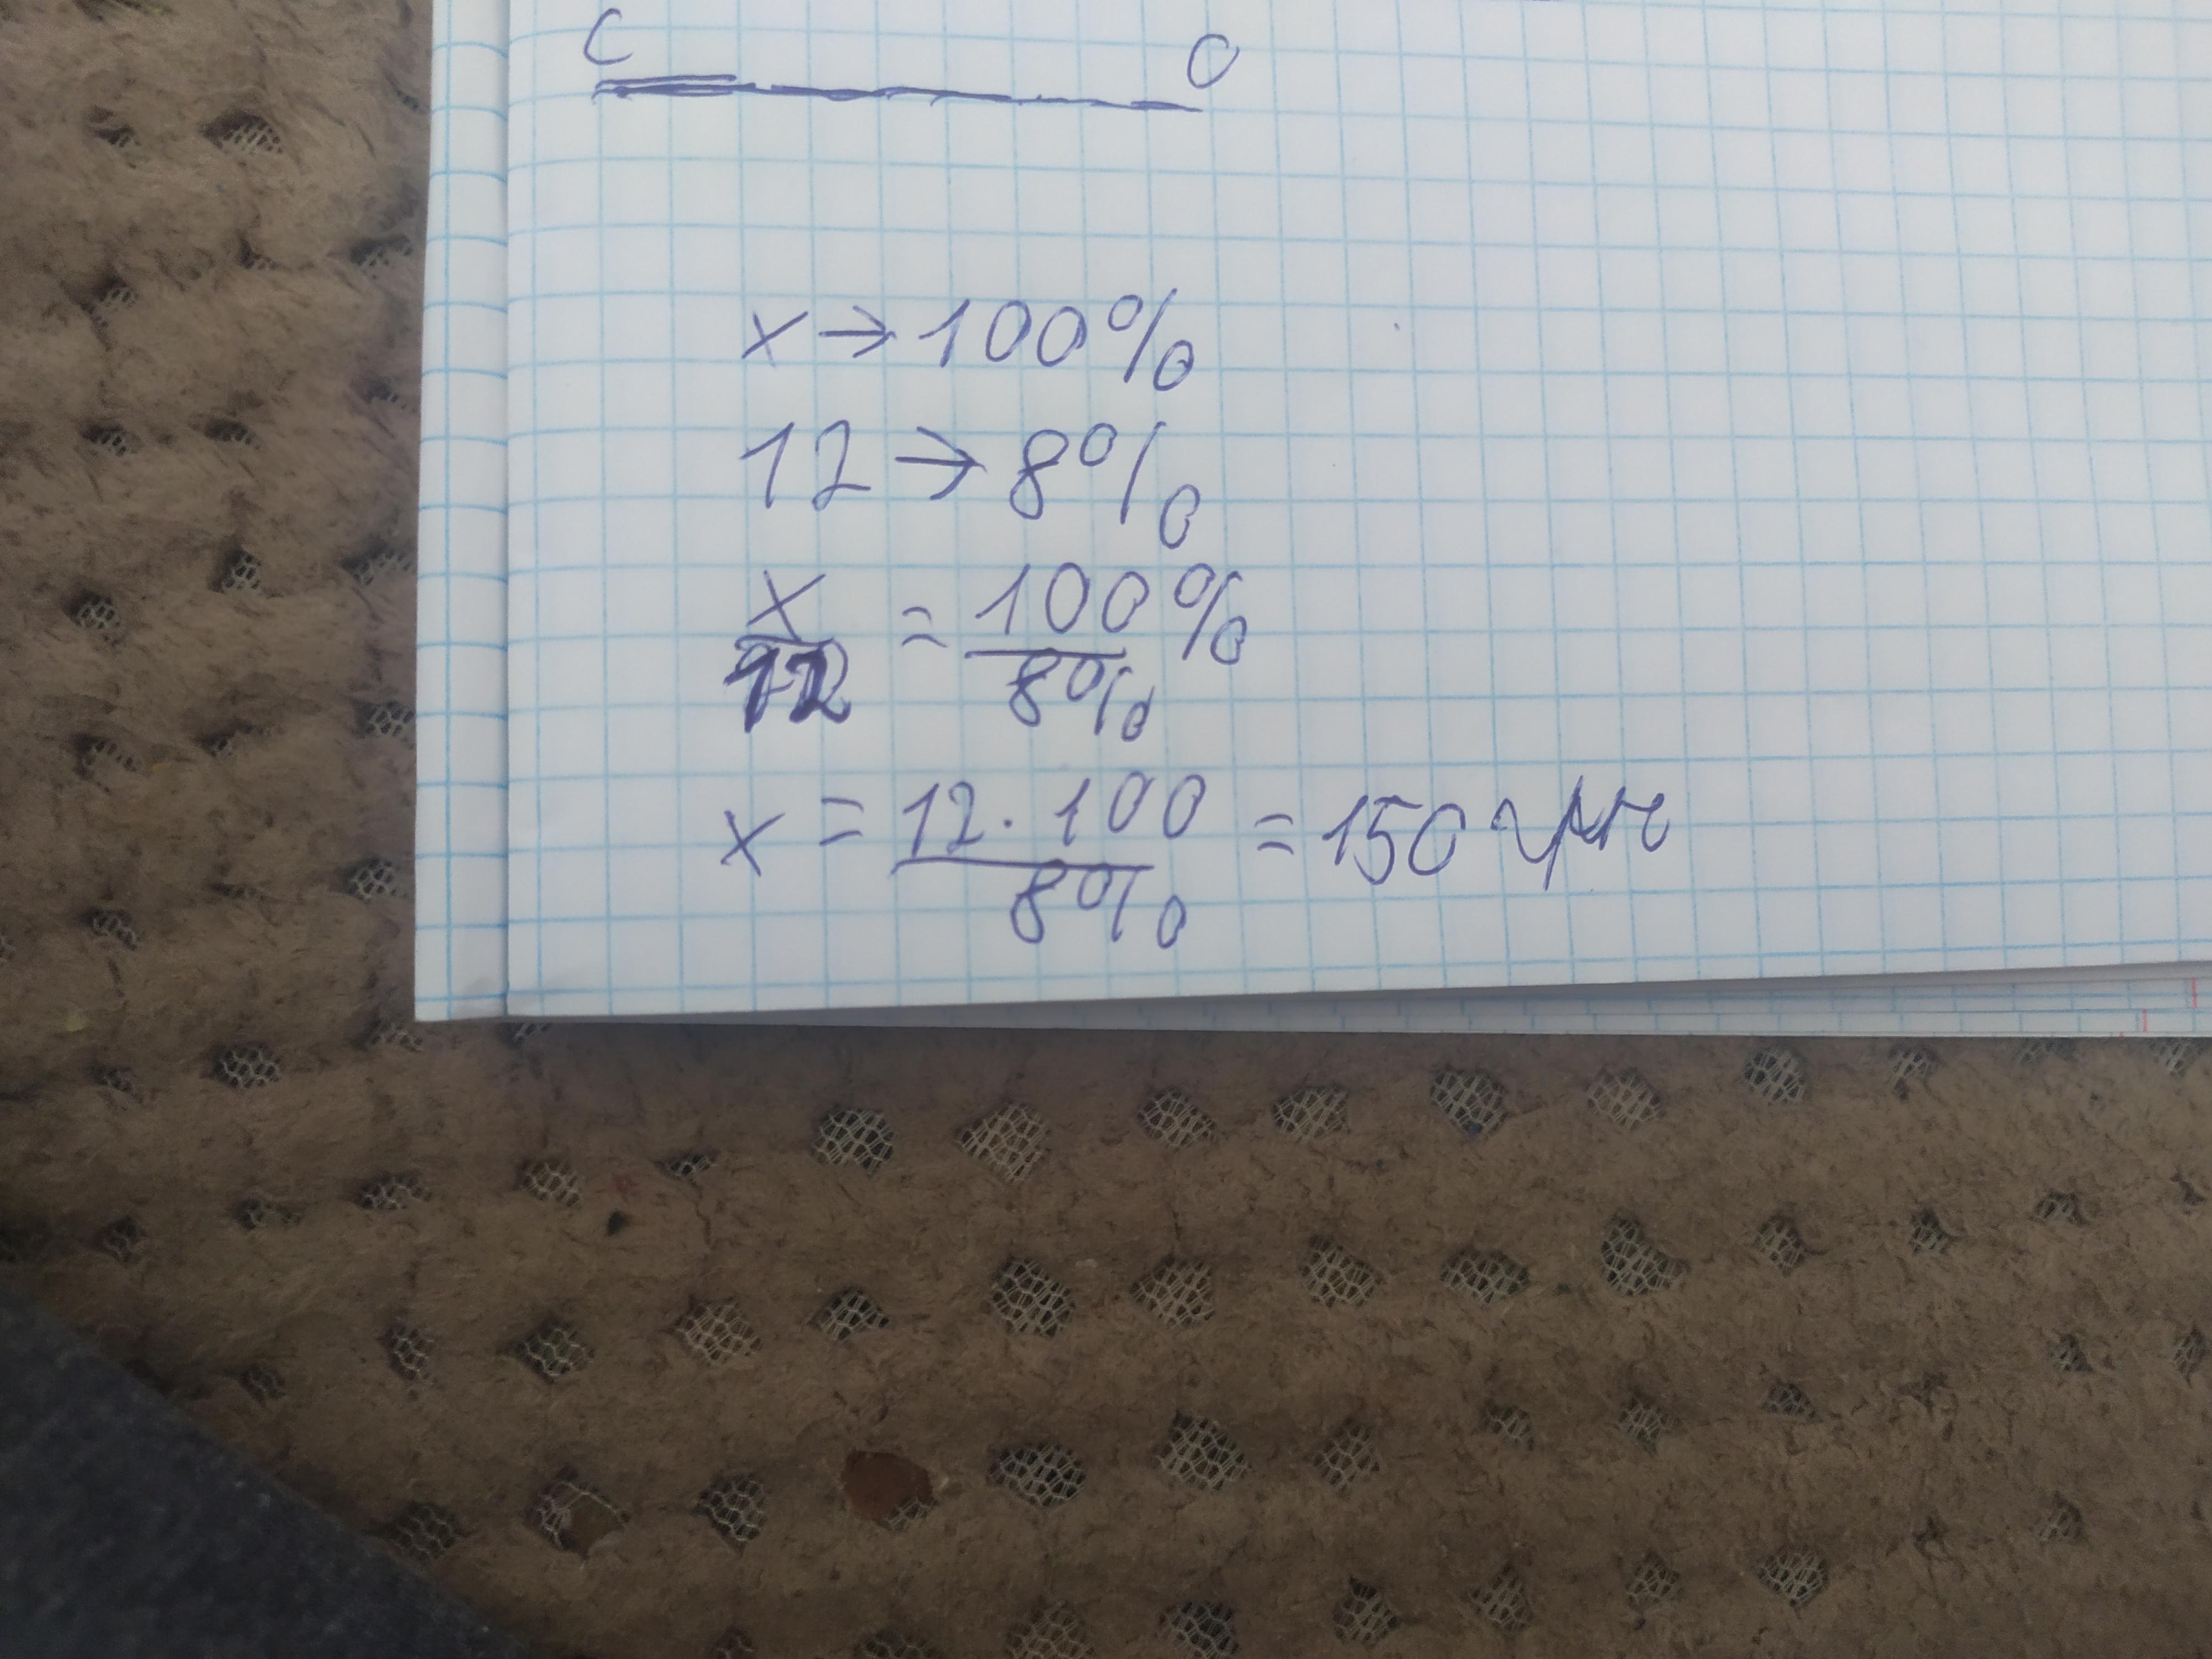 C O
x → 100%
12 → 8%
x/12 = 100%/8%
x = 12 · 100/8% = 150 грн